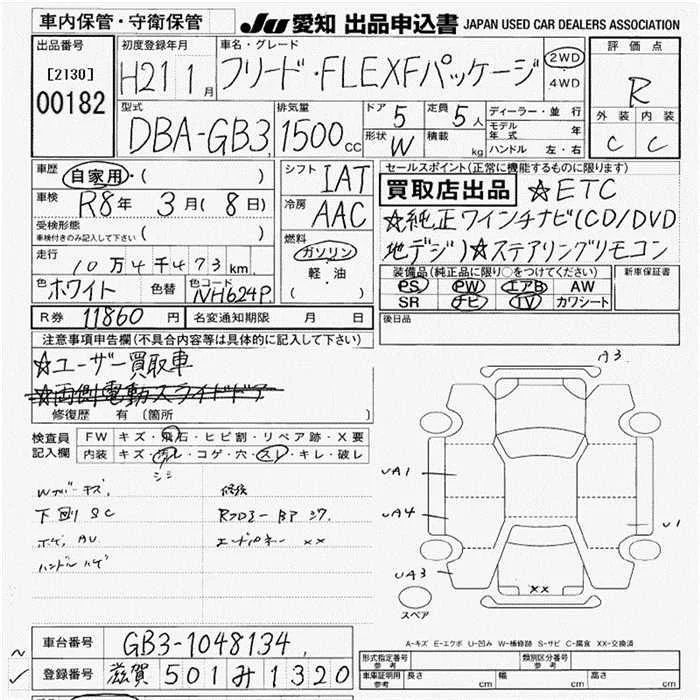 車内保管・守衛保管
JU愛知 出品申込書 JAPAN USED CAR DEALERS ASSOCIATION
出品番号
[2130]
00182
初度登録年月
H21 1月
車名・グレード
フリード・FLEXFパッケージ
2WD
4WD
評価点
R
外装 内装
C C
型式
DBA-GB3
排気量
1500cc
ドア 5
定員 5人
形状 W
積載 kg
ディーラー・並行
モデル年式 年
ハンドル 左・右
車歴
自家用・( )
車検
R8年 3月(8日)
受検形態
車検付きのみ記入して下さい ( )
走行
10万4千473km
色 ホワイト 色替 色コード NH624P
シフト IAT
冷房 AAC
燃料
ガソリン
軽・油
( )
セールスポイント(正常に機能するものに限ります)
買取店出品 ☆ETC
☆純正ワインチナビ(CD/DVD
地デジ)☆ステアリングリモコン
装備品(純正品に限り○をつけてください)
PS PW エアB AW
SR ナビ TV カワシート
新車保証書
後日品
R券 11860円 名変通知期限 月 日
注意事項申告欄(不具合内容等は具体的に記入して下さい)
☆ユーザー買取車
☆両側電動スライドドア
修復歴 有 〔箇所 〕
検査員記入欄
FW キズ・飛石・ヒビ割・リペア跡・X要
内装 キズ・汚レ・コゲ・穴・スレ・キレ・破レ
シミ
下回りSC
ハンドルハゲ
修復
A3
UA1
UA4
UA3
U1
XX
スペア
A-キズ E-エクボ U-凹み W-補修跡 S-サビ C-腐食 XX-交換済
車台番号 GB3-1048134
登録番号 滋賀 501 み 1320
形式指定番号 参考
類別区分番号 参考
車庫証明用 参考 長さ cm 幅 cm 高さ cm